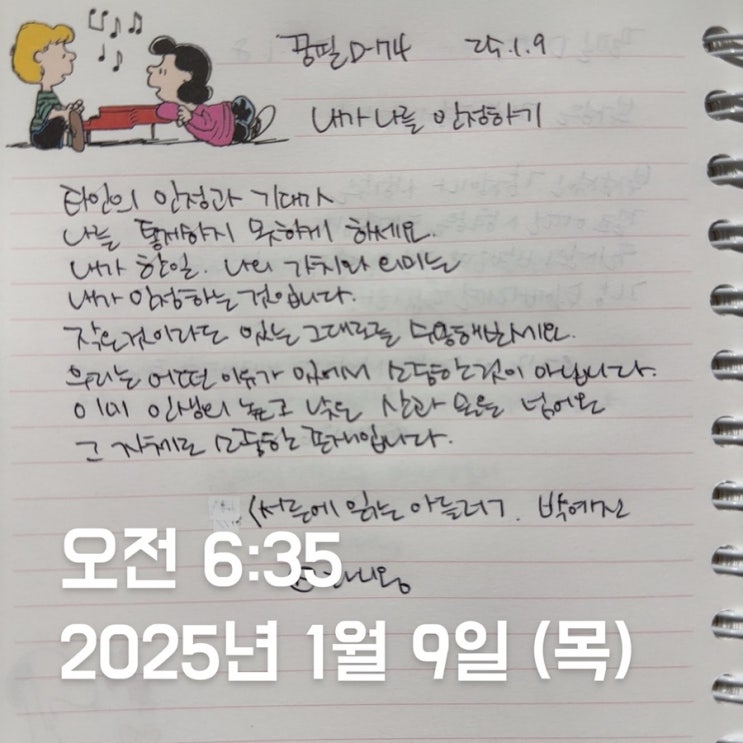 꿈필 D-74 25.1.9
내가 나를 인정하기
타인의 인정과 기대가
나를 통제하지 못하게 하세요.
내가 한일. 나의 가치와 의미는
내가 인정하는 것입니다.
작은것이라도 있는 그대로를 수용해보세요.
우리는 어떤 이유가 있어서 소중한것이 아닙니다.
이미 인생의 높고 낮은 산과 문을 넘어온
그 자체로 소중한 존재입니다.
<서른에 읽는 아들러>. 박예진
오전 6:35
2025년 1월 9일 (목)